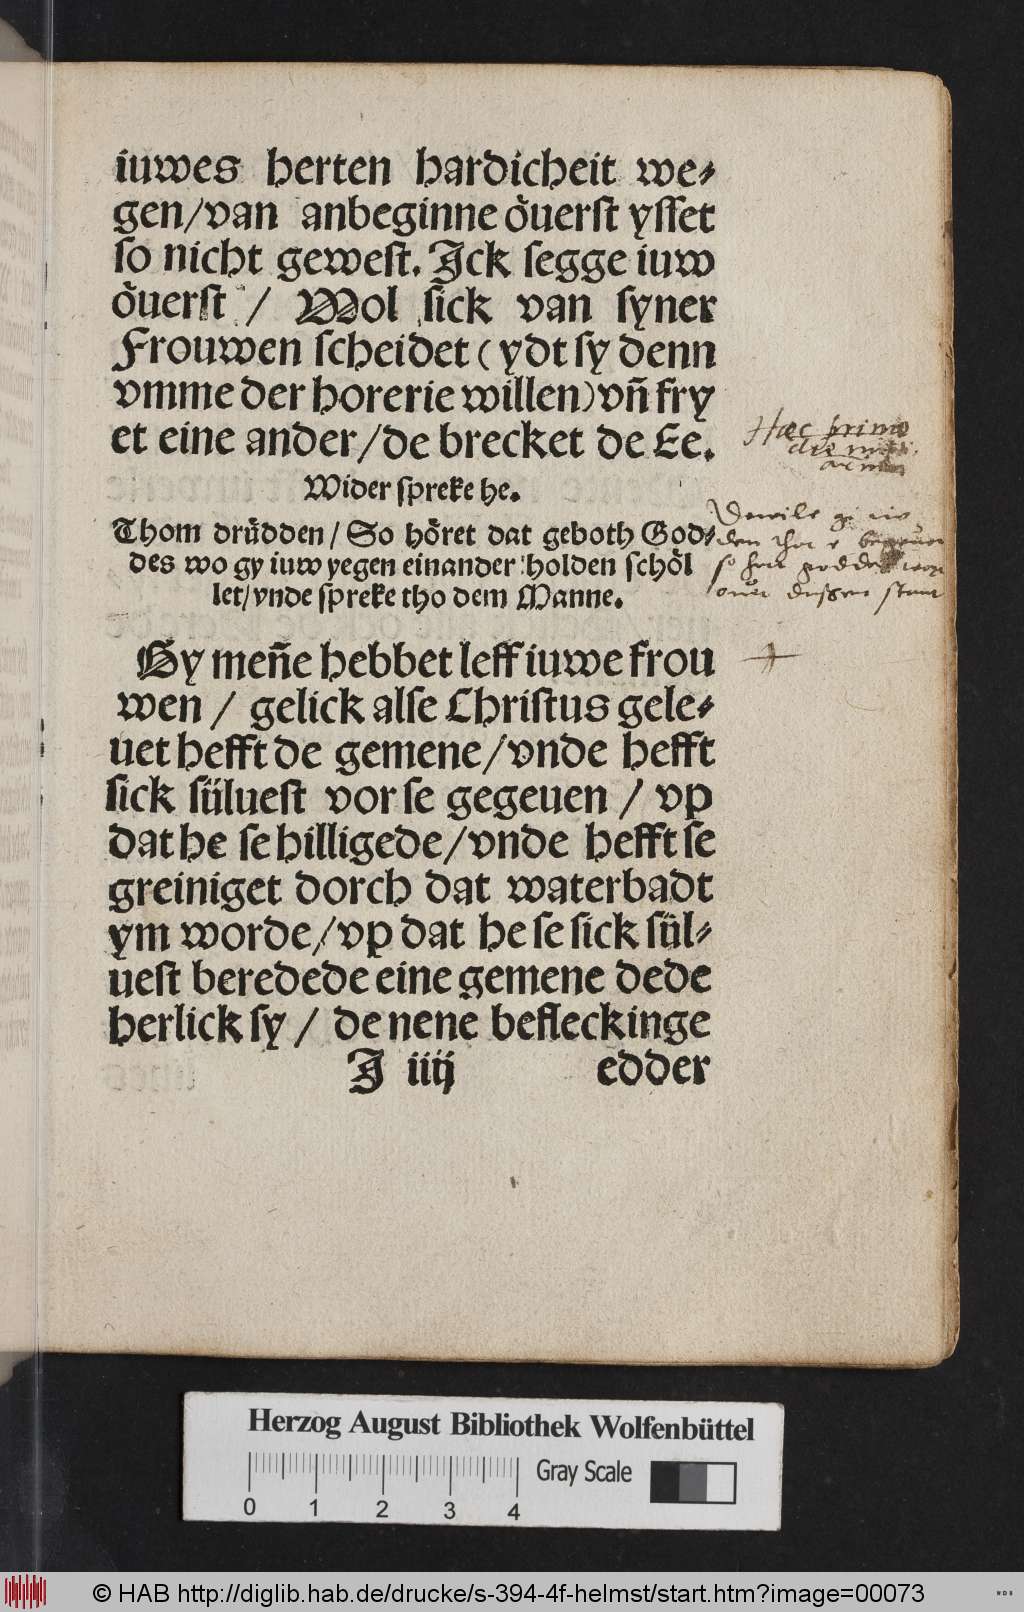 iuwes herten hardicheit we⸗
gen/van anbeginne oͤuerst ysset
so nicht gewest. Jck segge iuw
oͤuerst / Wol sick van syner
Frouwen scheidet (ydt sy denn
vmme der horerie willen) vn̄ fry
et eine ander/de brecket de Ee.
Wider spreke he.
Thom druͤdden/ So hoͤret dat geboth God⸗
des wo gy iuw yegen einander holden schoͤl
let/vnde spreke tho dem Manne.
Gy men̄e hebbet leff iuwe frou
wen / gelick alse Christus gele⸗
uet hefft de gemene/vnde hefft
sick suͤluest vor se gegeuen / vp
dat he se hilligede/vnde hefft se
greiniget dorch dat waterbadt
ym worde/vp dat he se sick suͤl⸗
uest beredede eine gemene dede
herlick sy / de nene befleckinge
J iiij edder
Haec primo
Dewile gi
so
ouer dussen stant
Herzog August Bibliothek Wolfenbüttel
Gray Scale
0 1 2 3 4
© HAB http://diglib.hab.de/drucke/s-394-4f-helmst/start.htm?image=00073